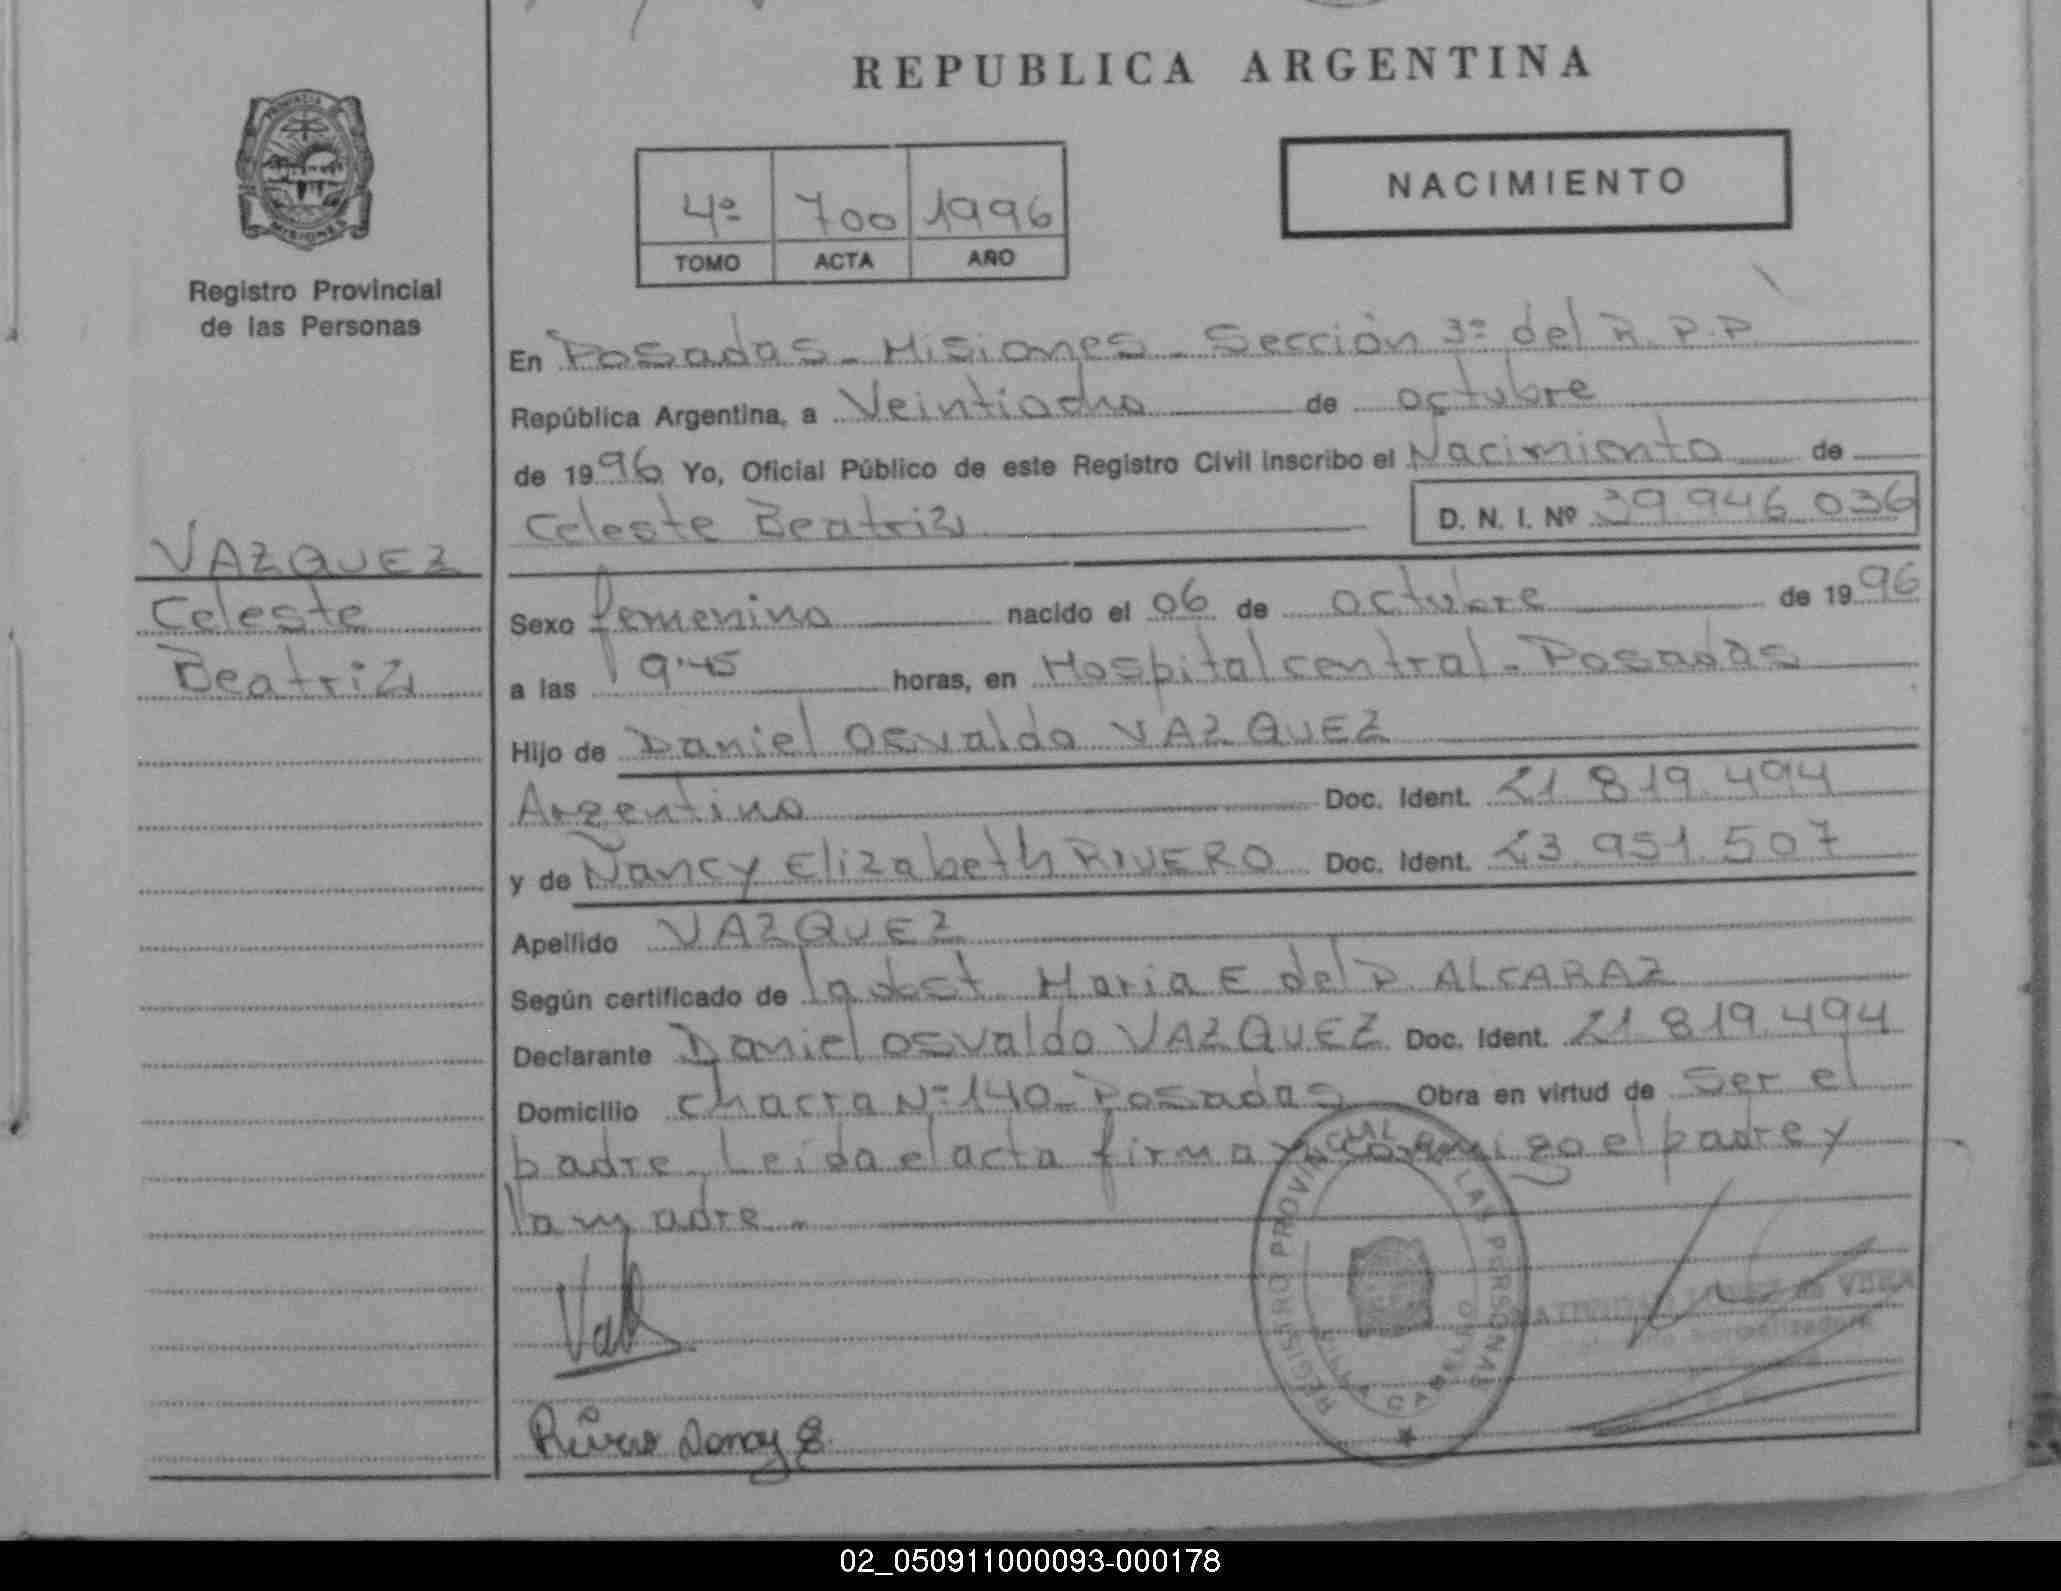 REPUBLICA ARGENTINA
PROVINCIA
MISIONES
Registro Provincial
de las Personas
4º 700 1996
TOMO ACTA AÑO
NACIMIENTO
En Posadas - Misiones - Sección 3º del R.P.P.
República Argentina, a Veintiocho de octubre
de 1996 Yo, Oficial Público de este Registro Civil inscribo el Nacimiento de
Celeste Beatriz D. N. I. Nº 39.946.036
VAZQUEZ
Celeste
Beatriz
Sexo femenino nacido el 06 de octubre de 1996
a las 9.45 horas, en Hospital central - Posadas
Hijo de Daniel Osvaldo VAZQUEZ
Argentino Doc. Ident. 21.819.494
y de Nancy Elizabeth RIVERO Doc. Ident. 23.951.507
Apellido VAZQUEZ
Según certificado de la obst. Maria E del P. ALCARAZ
Declarante Daniel Osvaldo VAZQUEZ Doc. Ident. 21.819.494
Domicilio Chacra Nº 140 - Posadas Obra en virtud de Ser el
padre. Leída el acta firma conmigo el padre y
la madre.-
REGISTRO PROVINCIAL DE LAS PERSONAS
VERA
Rivero Nancy E.
02_050911000093-000178